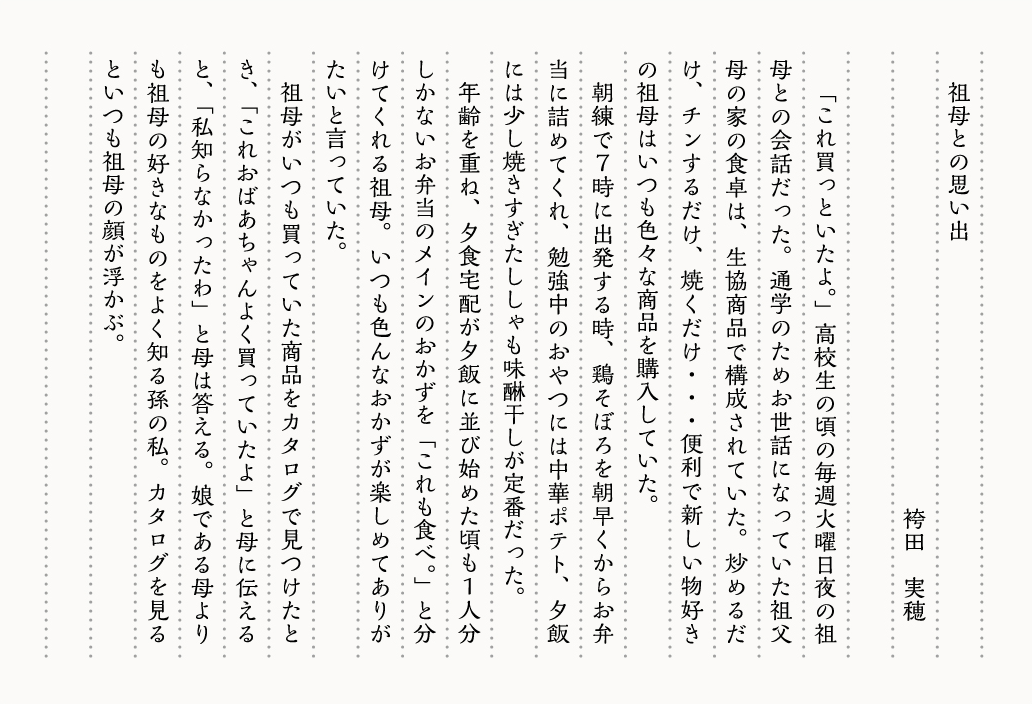 祖母との思い出
袴田　実穂
「これ買っといたよ。」高校生の頃の毎週火曜日夜の祖
母との会話だった。通学のためお世話になっていた祖父
母の家の食卓は、生協商品で構成されていた。炒めるだ
け、チンするだけ、焼くだけ・・・便利で新しい物好き
の祖母はいつも色々な商品を購入していた。
朝練で７時に出発する時、鶏そぼろを朝早くからお弁
当に詰めてくれ、勉強中のおやつには中華ポテト、夕飯
には少し焼きすぎたししゃも味醂干しが定番だった。
年齢を重ね、夕食宅配が夕飯に並び始めた頃も１人分
しかないお弁当のメインのおかずを「これも食べ。」と分
けてくれる祖母。いつも色んなおかずが楽しめてありが
たいと言っていた。
祖母がいつも買っていた商品をカタログで見つけたと
き、「これおばあちゃんよく買っていたよ」と母に伝える
と、「私知らなかったわ」と母は答える。娘である母より
も祖母の好きなものをよく知る孫の私。カタログを見る
といつも祖母の顔が浮かぶ。